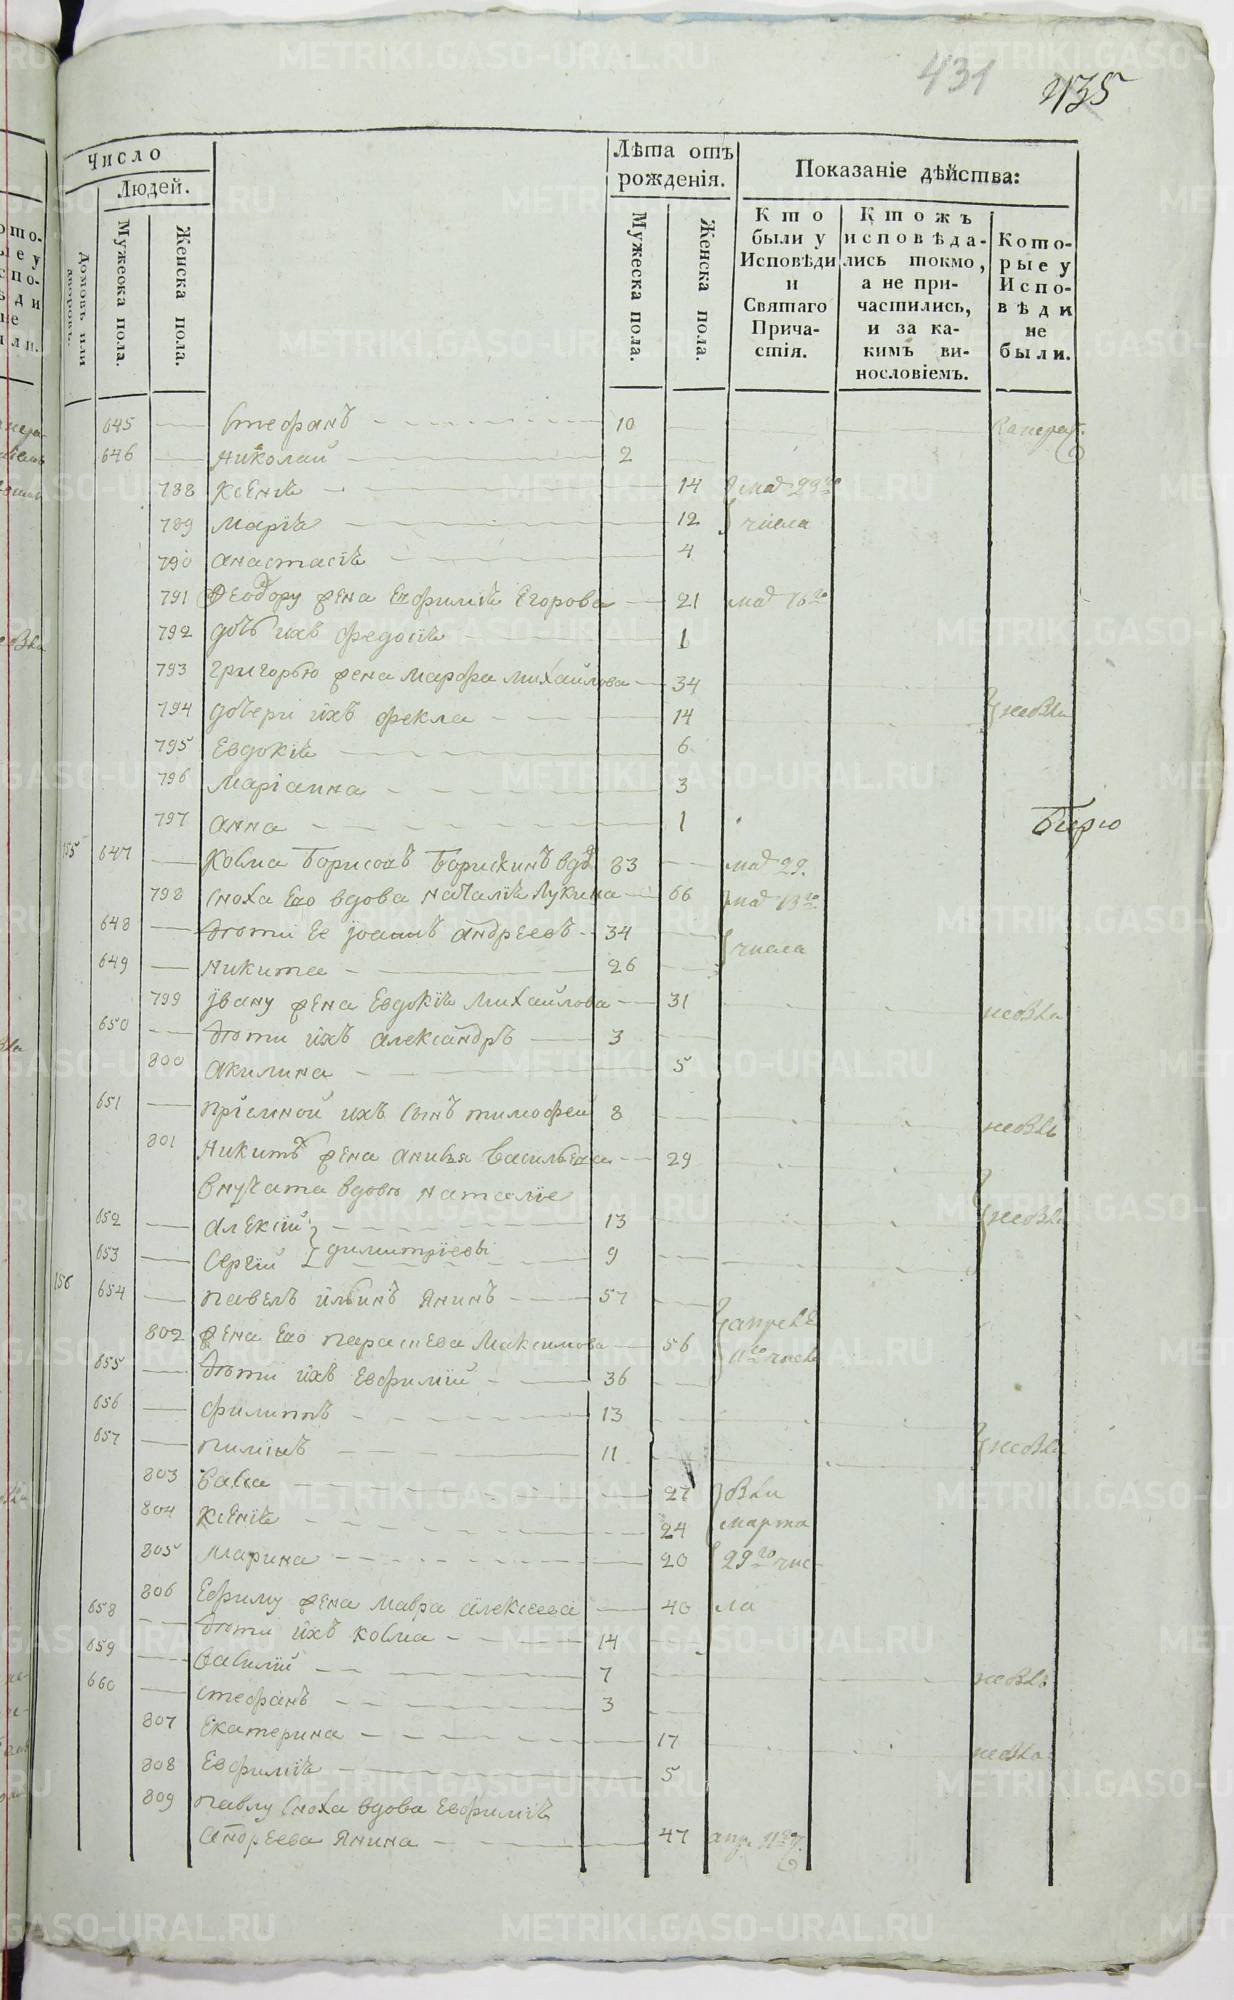 431
435
Число
Людей.
Домовъ или дворовъ.
Мужеска пола.
Женска пола.
Лѣта отъ рожденїя.
Мужеска пола.
Женска пола.
Показанїе дѣйства:
Кто были у Исповѣди и Святаго Причастїя.
Ктожъ исповѣдались токмо, а не причастились, и за какимъ винословїемъ.
Которые у Исповѣди не были.
645 Стефанъ 10
646 Николай 2
788 Ксенїѧ 14 маꙗ 29го
789 Марїѧ 12 числа
790 Анастасїѧ 4
791 Феодору жена Евфимїѧ Егорова 21 маꙗ 16го
792 дочь ихъ Федосїѧ 1
793 Григорью жена Марфа Михайлова 34
794 дочери ихъ Фекла 14
795 Евдокїѧ 6
796 Марїанна 3
797 Анна 1
155 647 Козма Борисовъ Борискинъ вдо 83 29.
798 Сноха Его вдова Наталїѧ Лукина 66 13го
648 дѣти Ее Їоаннъ Андреевъ 34 числа
649 Никита 26
799 Ївану жена Евдокїѧ Михайлова 31
650 дѣти ихъ Александръ 3
800 Акилина 5
651 прїемной ихъ сынъ Тимофей 8
801 Никитѣ жена Анисья Васильева 29
Внучата вдовы Наталїе
652 Алексїй 13
димитрїевы
653 Сергїй 9
156 654 Павелъ Ильинъ Янинъ 57
802 жена Его Параскева Максимова 56 11го числа
655 дѣти ихъ Евфимїй 36
656 Филиппъ 13
657 11
803 27
804 Ксенїѧ 24 марта
805 Марина 20 29го чис-
806 Ефиму жена Мавра Алексеева 40 ла
658 дѣти ихъ Козма 14
659 Василїй 7
660 Стефанъ 3
807 Екатерина 17
808 Евфимїѧ 5
809 Павлу сноха вдова Евфимїѧ
Андреева Янина 47
METRIKI.GASO-URAL.RU